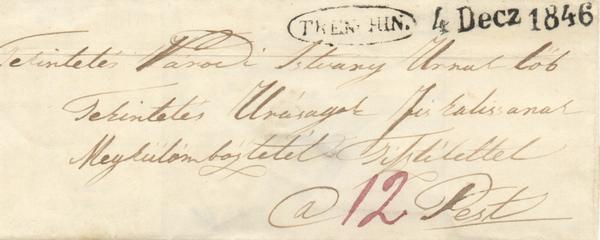 TRENCHIN. 4 Decz 1846
Tekintetes Városi Istvany Urnak töb
Tekintetes Uraságok Fiskalissanak
Megkülömböztetet Tisztelettel
@ 12 Pest